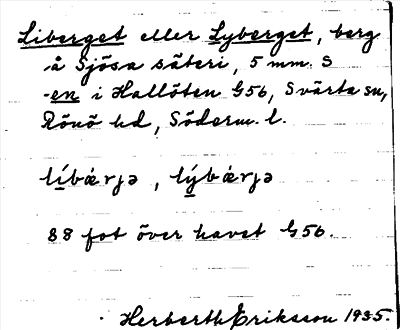 Liberget eller Lyberget, berg
å Sjösa säteri, 5 mm. S
-en i Hallöten G56, Svärta sn,
Rönö hd, Söderm. l.
lìbǽrjə, lỳbǽrjə
88 fot över havet G56.
Herberth Eriksson 1935.